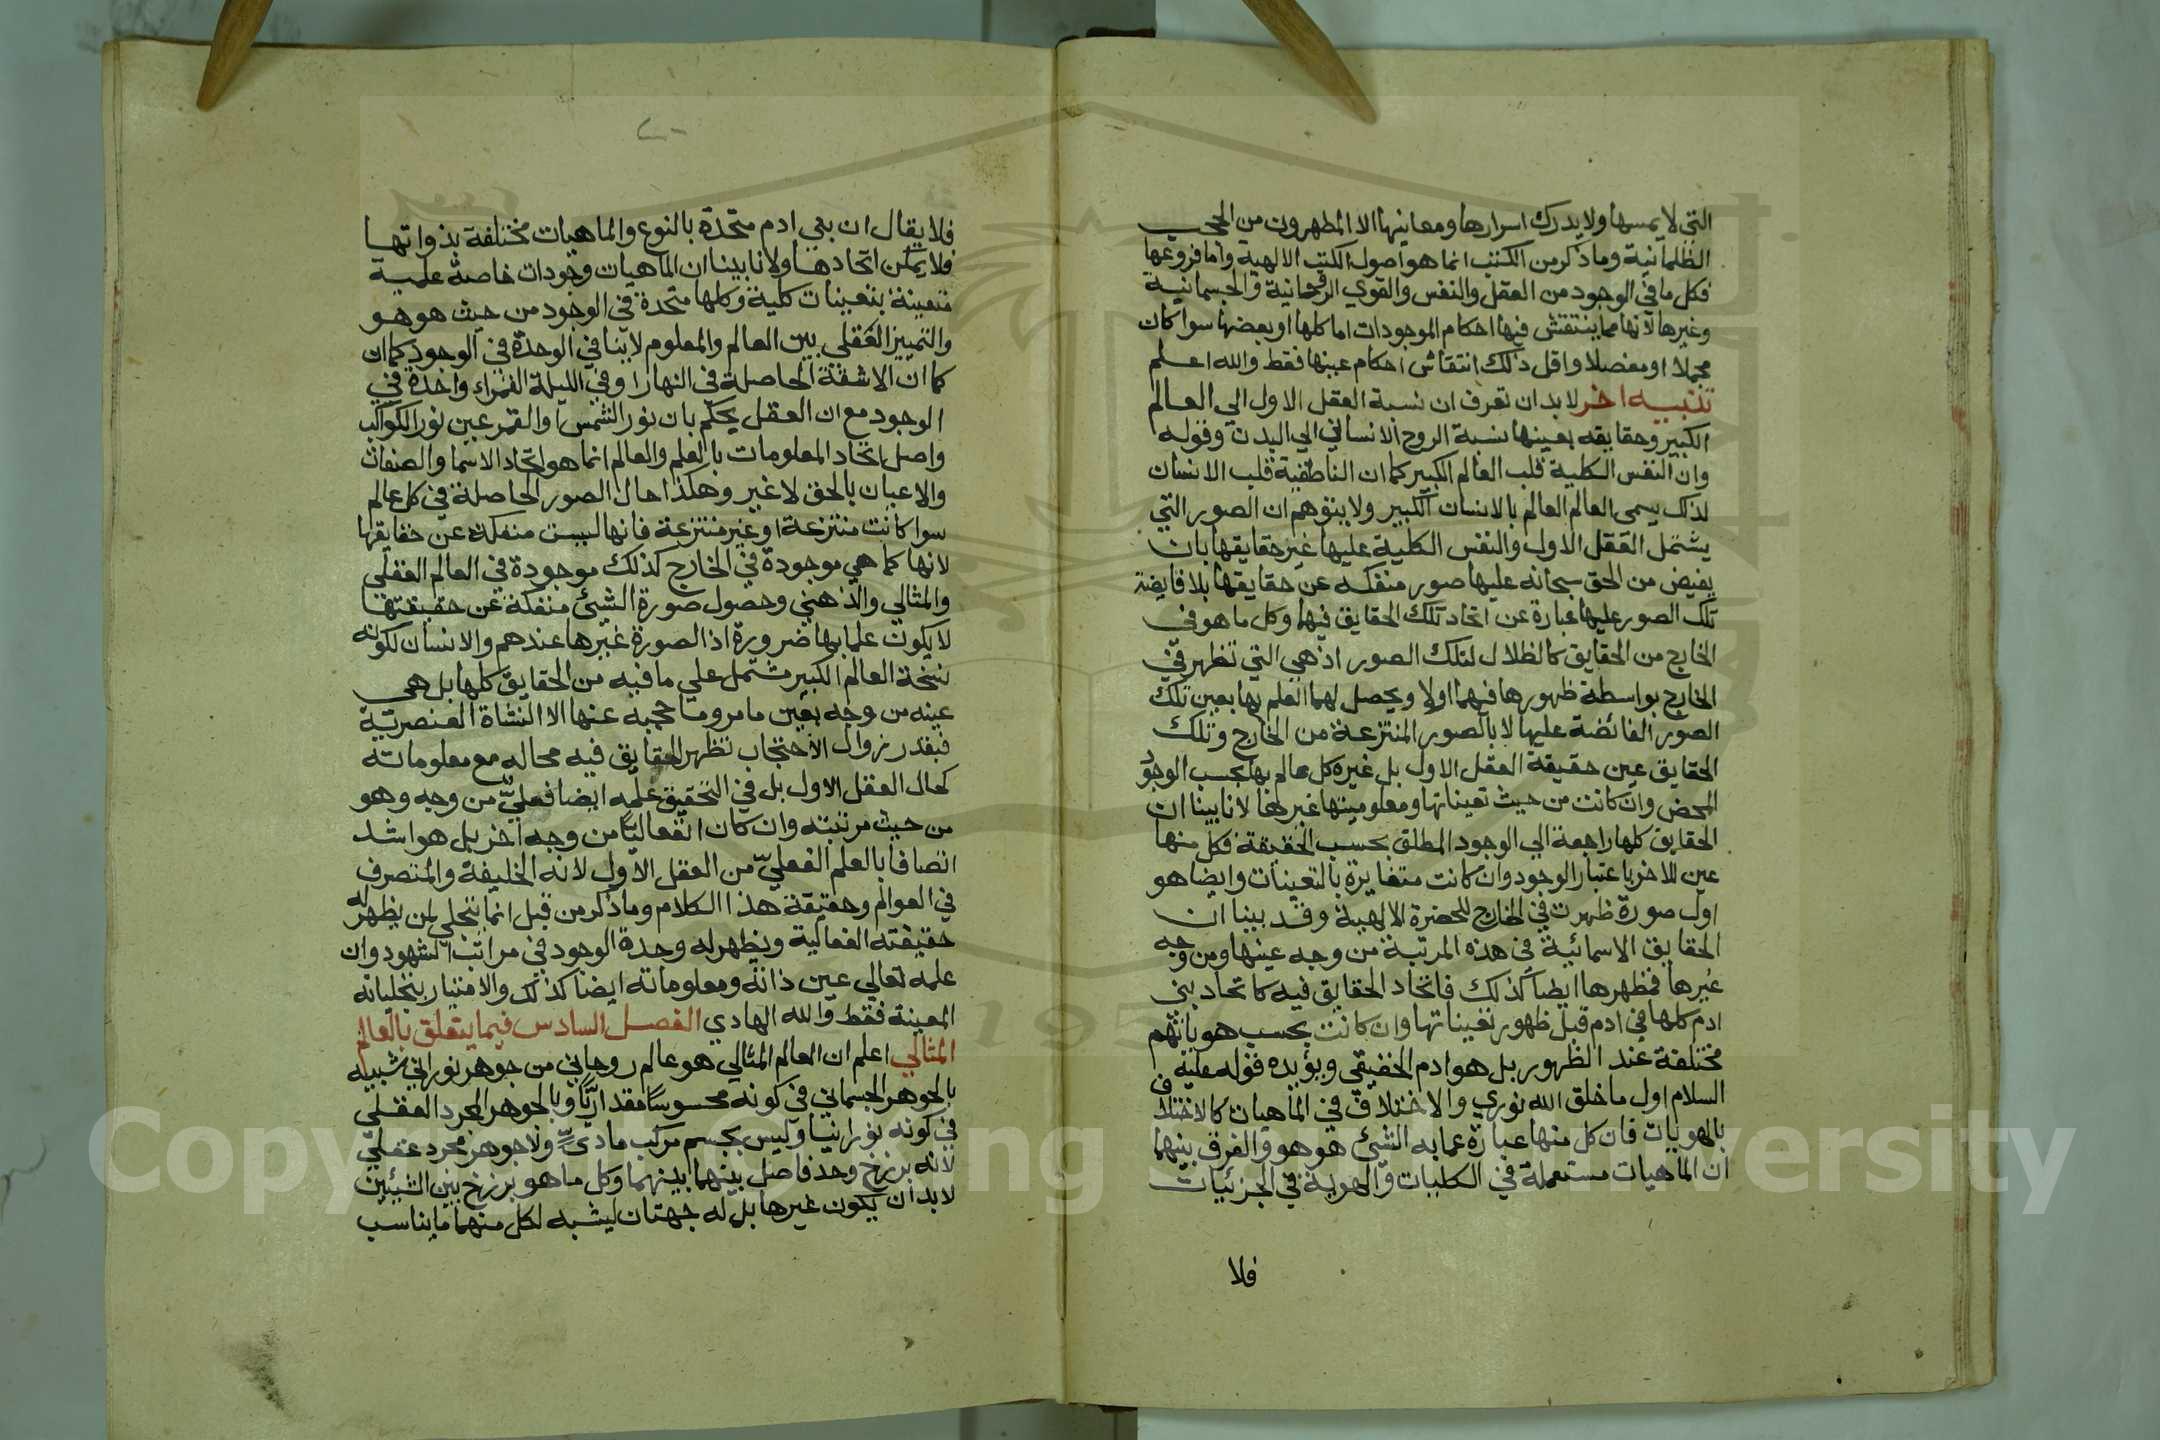 التي لا يمسها ولا يدرك اسرارها ومعاينها الا المطهرون من الحجب
الظلمانية وما ذكر من الكتب انما هو اصول الكتب الالهية واما فروعها
فكل ما في الوجود من العقل والنفس والقوي الروحانية والجسمانية
وغيرها لانها مما ينتقش فيها احكام الموجودات اما كلها او بعضها سوا كان
مجملا او مفصلا واقل ذلك انتقاش احكام عينها فقط والله اعلم
تنبيه اخر لا بد ان تعرف ان نسبة العقل الاول الي العالم
الكبير وحقايقه بعينها نسبة الروح الانساني الي البدن وقوله
وان النفس الكلية قلب العالم الكبير كما ان الناطقية قلب الانسان
لذلك يسمي العالم العالم بالانسان الكبير ولا يتوهم ان الصور التي
يشتمل العقل الاول والنفس الكلية عليها غير حقايقها بان
يفيض من الحق سبحانه عليها صور منفكه عن حقايقها بلا فايضة
تلك الصور عليها عبارة عن اتحاد تلك الحقايق فيها وكل ما هو في
الخارج من الحقايق كالظلال لتلك الصور اذ هي التي تظهر في
الخارج بواسطة ظهورها فيهما اولا ويحصل لهما العلم بها بعين تلك
الصور الفائضة عليها لا بالصور المنتزعة من الخارج وتلك
الحقايق عين حقيقة العقل الاول بل غيره كل عالم بها بحسب الوجود
المحض وان كانت من حيث تعيناتها ومعلوميتها غيرها لانا بينا ان
الحقايق كلها راجعة الي الوجود المطلق بحسب الحقيقة فكل منها
عين للاخر باعتبار الوجود وان كانت متغايرة بالتعينات وايضا هو
اول صورة ظهرت في الخارج للحضرة الالهية وقد بينا ان
الحقايق الاسمائية في هذه المرتبة من وجه عينها ومن وجه
غيرها فمظهرها ايضا كذلك فاتحاد الحقايق فيه كاتحاد بني
ادم كلها في ادم قبل ظهور تعيناتها وان كانت بحسب هوياتهم
مختلفة عند الظهور بل هو ادم الحقيقي ويؤيده قوله عليه
السلام اول ما خلق الله نوري والاختلاف في الماهيان كالاختلاف
بالهويات فان كل منها عبارة عما به الشئ هو هو والفرق بينهما
ان الماهيات مستعملة في الكليات والهوية في الجزئيات
فلا
فلا يقال ان بني ادم متحدة بالنوع والماهيات مختلفة بذواتها
فلا يمكن اتحادها ولانا بينا ان الماهيات وجودات خاصة علمية
متعينة بتعينات كلية وكلها متحدة في الوجود من حيث هو هو
والتمييز العقلي بين العالم والمعلوم لا ينافي الوحدة في الوجود كما ان
كما ان الاشعة الحاصلة في النهار او في الليلة القمراء واحدة في
الوجود مع ان العقل يحكم بان نور الشمس والقمر عين نور الكواكب
واصل اتحاد المعلومات بالعلم والعالم انما هو اتحاد الاسما والصفات
والاعيان بالحق لا غير وهكذا حال الصور الحاصلة في كل عالم
سوا كانت منتزعة او غير منتزعة فانها ليست منفكة عن حقايقها
لانها كما هي موجودة في الخارج كذلك موجودة في العالم العقلي
والمثالي والذهني وحصول صورة الشئ منفكة عن حقيقتها
لا يكون علما بها ضرورة اذ الصورة غيرها عندهم والانسان لكونه
نسخة العالم الكبير مشتمل علي ما فيه من الحقايق كلها بل هي
عينه من وجه بعين ما مر وما حجبه عنها الا النشاة العنصرية
فبقدر زوال الاحتجاب تظهر الحقايق فيه محاله مع معلوماته
كحال العقل الاول بل في التحقيق علمه ايضا فعليّ من وجه وهو
من حيث مرتبته وان كان انفعاليا من وجه اخر بل هو اشد
اتصافا بالعلم الفعليّ من العقل الاول لانه الخليفة والمتصرف
في العوالم وحقيقة هذا الكلام وما ذكر من قبل انما يتجلي لمن يظهر له
حقيقته الفعالية ويظهر له وحدة الوجود في مراتب الشهود وان
علمه تعالي عين ذاته ومعلوماته ايضا كذلك والامتياز بتجلياته
المعينة فقط والله الهادي الفصل السادس فيما يتعلق بالعالم
المثالي اعلم ان العالم المثالي هو عالم روحاني من جوهر نوراني شبيه
بالجوهر الجسماني في كونه محسوسا مقداريّا وبالجوهر المجرد العقلي
في كونه نورانيا وليس بجسم مركب مادي ولا جوهر مجرد عقليّ
لانه برزخ وحد فاصل بينهما بينهما وكل ما هو برزخ بين الشيئين
لا بد ان يكون غيرها بل له جهتان ليشبه لكل منهما ما يناسب